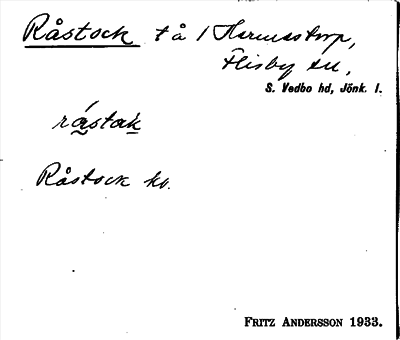 Råstock t å 1 Hermestorp,
Flisby sn,
S. Vedbo hd, Jönk. l.
råstak
Råstock kv.
FRITZ ANDERSSON 1933.